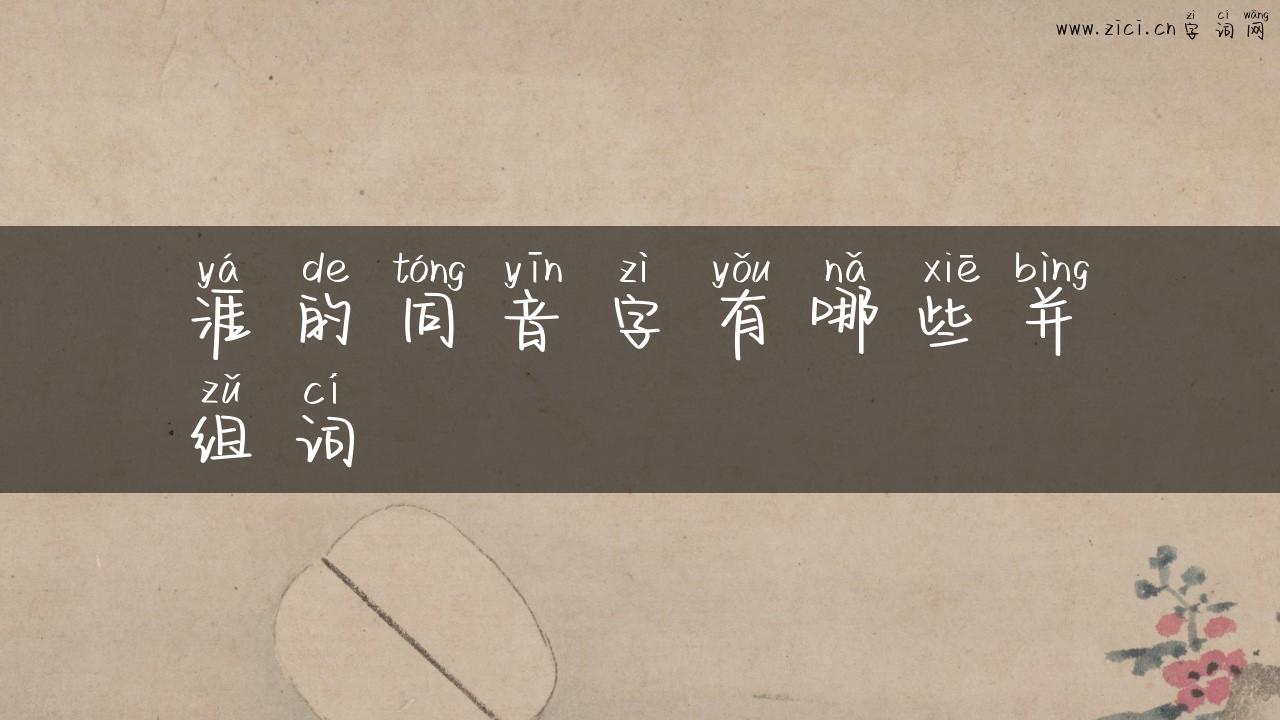 zì cí wǎng
www.zici.cn字词网
yá de tóng yīn zì yǒu nǎ xiē bìng
涯的同音字有哪些并
zǔ cí
组词